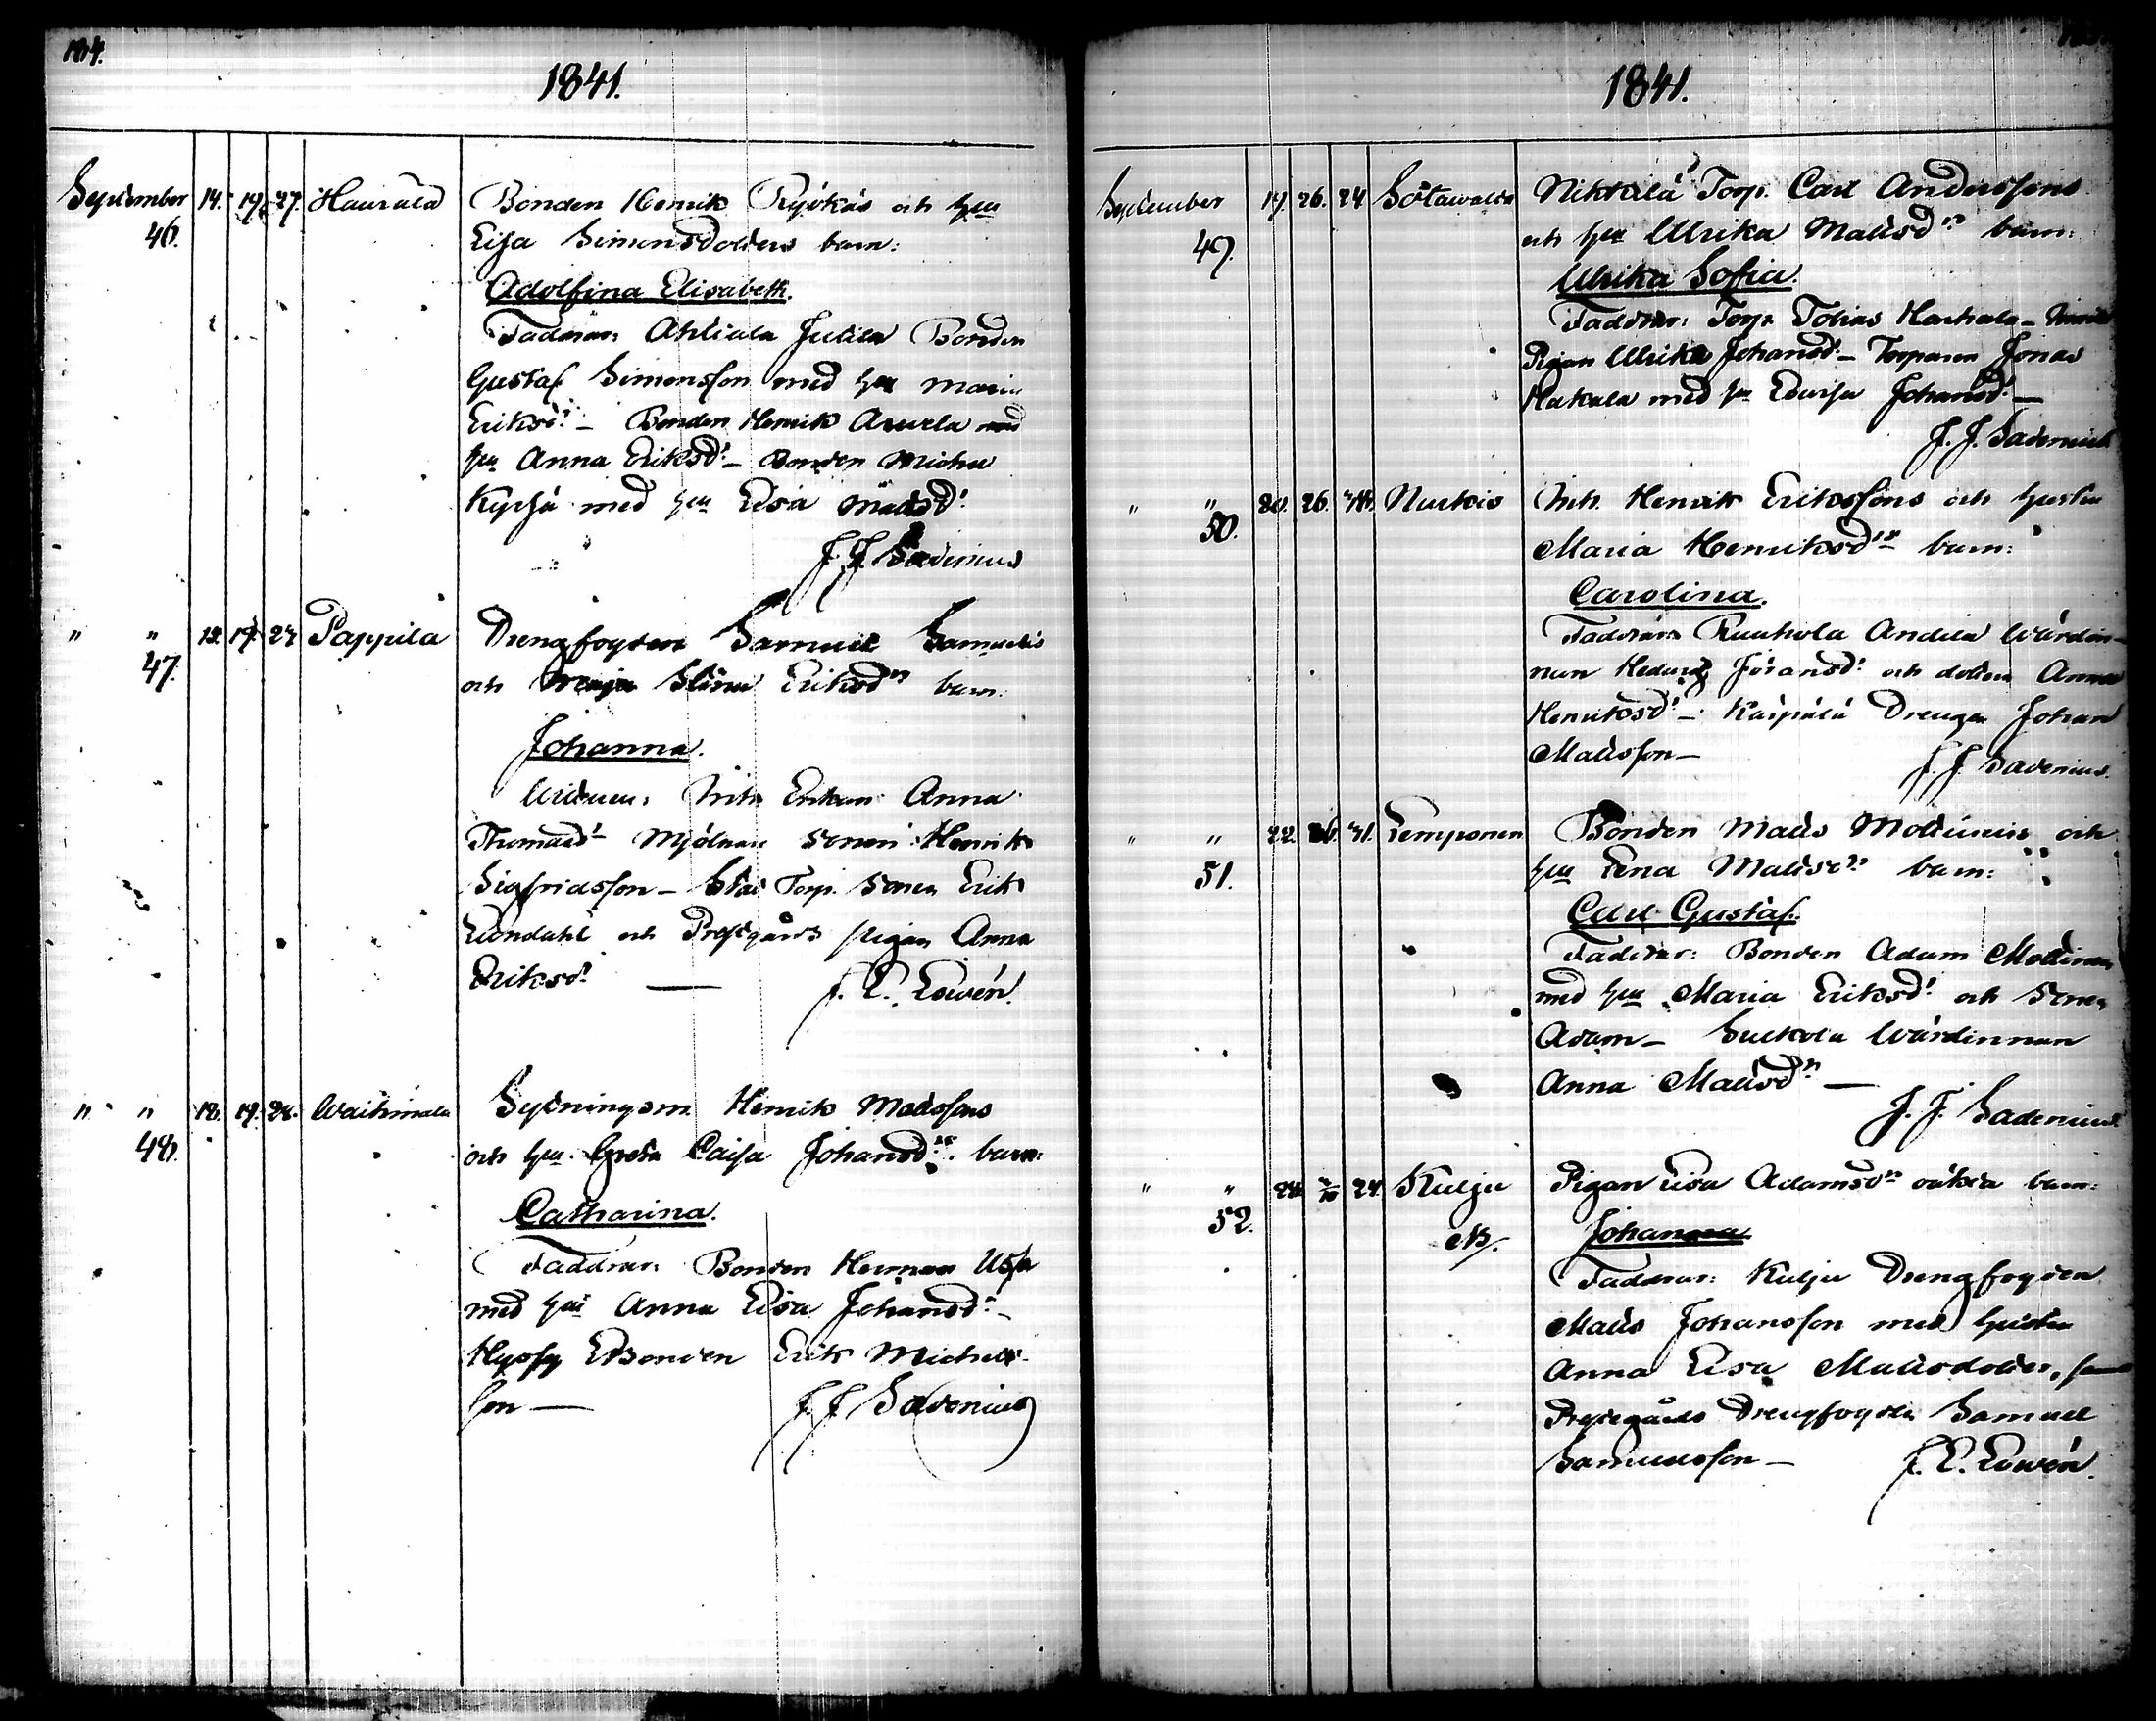 184.
1841.
September 14. 19. 27. Haurala
46.
Bonden Henrik Ryökäs och hu
Lisa Simonsdotters barn:
Adolfina Elisabeth.
Faddrar: Ahliala Jutila Bonden
Gustaf Simonsson med hu Maria
Eriksdr – Bonden Henrik Anuela med
hu Anna Eriksdr – Bonden Michu
med hu Lisa Matsdr
J. J. Sadenius
" " 19. 27 Pappila
47.
Drengfogden Samuel Samuels
och Stina Eriksdrs barn:
Johanna.
Wittnen: Inh Enkan Anna
Thomasdr Mjölnare sonen Henrik
Sigfridsson – Torp. sonen Erik
Lundahl och Prestgårds pigan Anna
Eriksdr — J. L. Lowén.
" " 18. 19. 28. Waihimala
48.
Sytningsm Henrik Matssons
och hu Greta Caisa Johansdrs barn:
Catharina.
Faddrar: Bonden Herman
med hu Anna Lisa Johansdr –
Hyssy EBonden Erik Michels-
son — J. J. Sadenius
1841.
September 19. 26. 24 Sotawalta
49.
Nikkilä Torp. Carl Anderssons
och hu Ulrika Matisdrs barn:
Ulrika Sofia.
Faddrar: Torp. Tobias –
Pigan Ulrika Johansdr – Torparen Jonas
Hakala med hu Lovisa Johansdr —
J. J. Sadenius
" " 20. 26. Nurkis
50.
Inh. Henrik Erikssons och hustru
Maria Henriksdrs barn:
Carolina.
Faddrar: Ruuhola Andila Wärdin-
nan Hedvig Jöransdr och dottern Anna
Henriksdr – Drengen Johan
Matisson –
J. J. Sadenius.
" " 22. 26. 31. Lemponen
51.
Bonden Matts Mottinens och
hu Lena Matisdrs barn:
Carl Gustaf.
Faddrar: Bonden Adam Mottinen
med hu Maria Eriksdr och sonen
Adam – Suckola Wärdinnan
Anna Matisdr —
J. J. Sadenius.
" " 2/10 27. Kulju
52. NB.
Pigan Lisa Adamsdrs oäkta barn:
Johanna
Faddrar: Kulju Drengfogden
Matts Johansson med hustru
Anna Lisa Matisdotter, samt
Prestegårds Drengfogden Samuel
Samuelsson – J. L. Lowén.